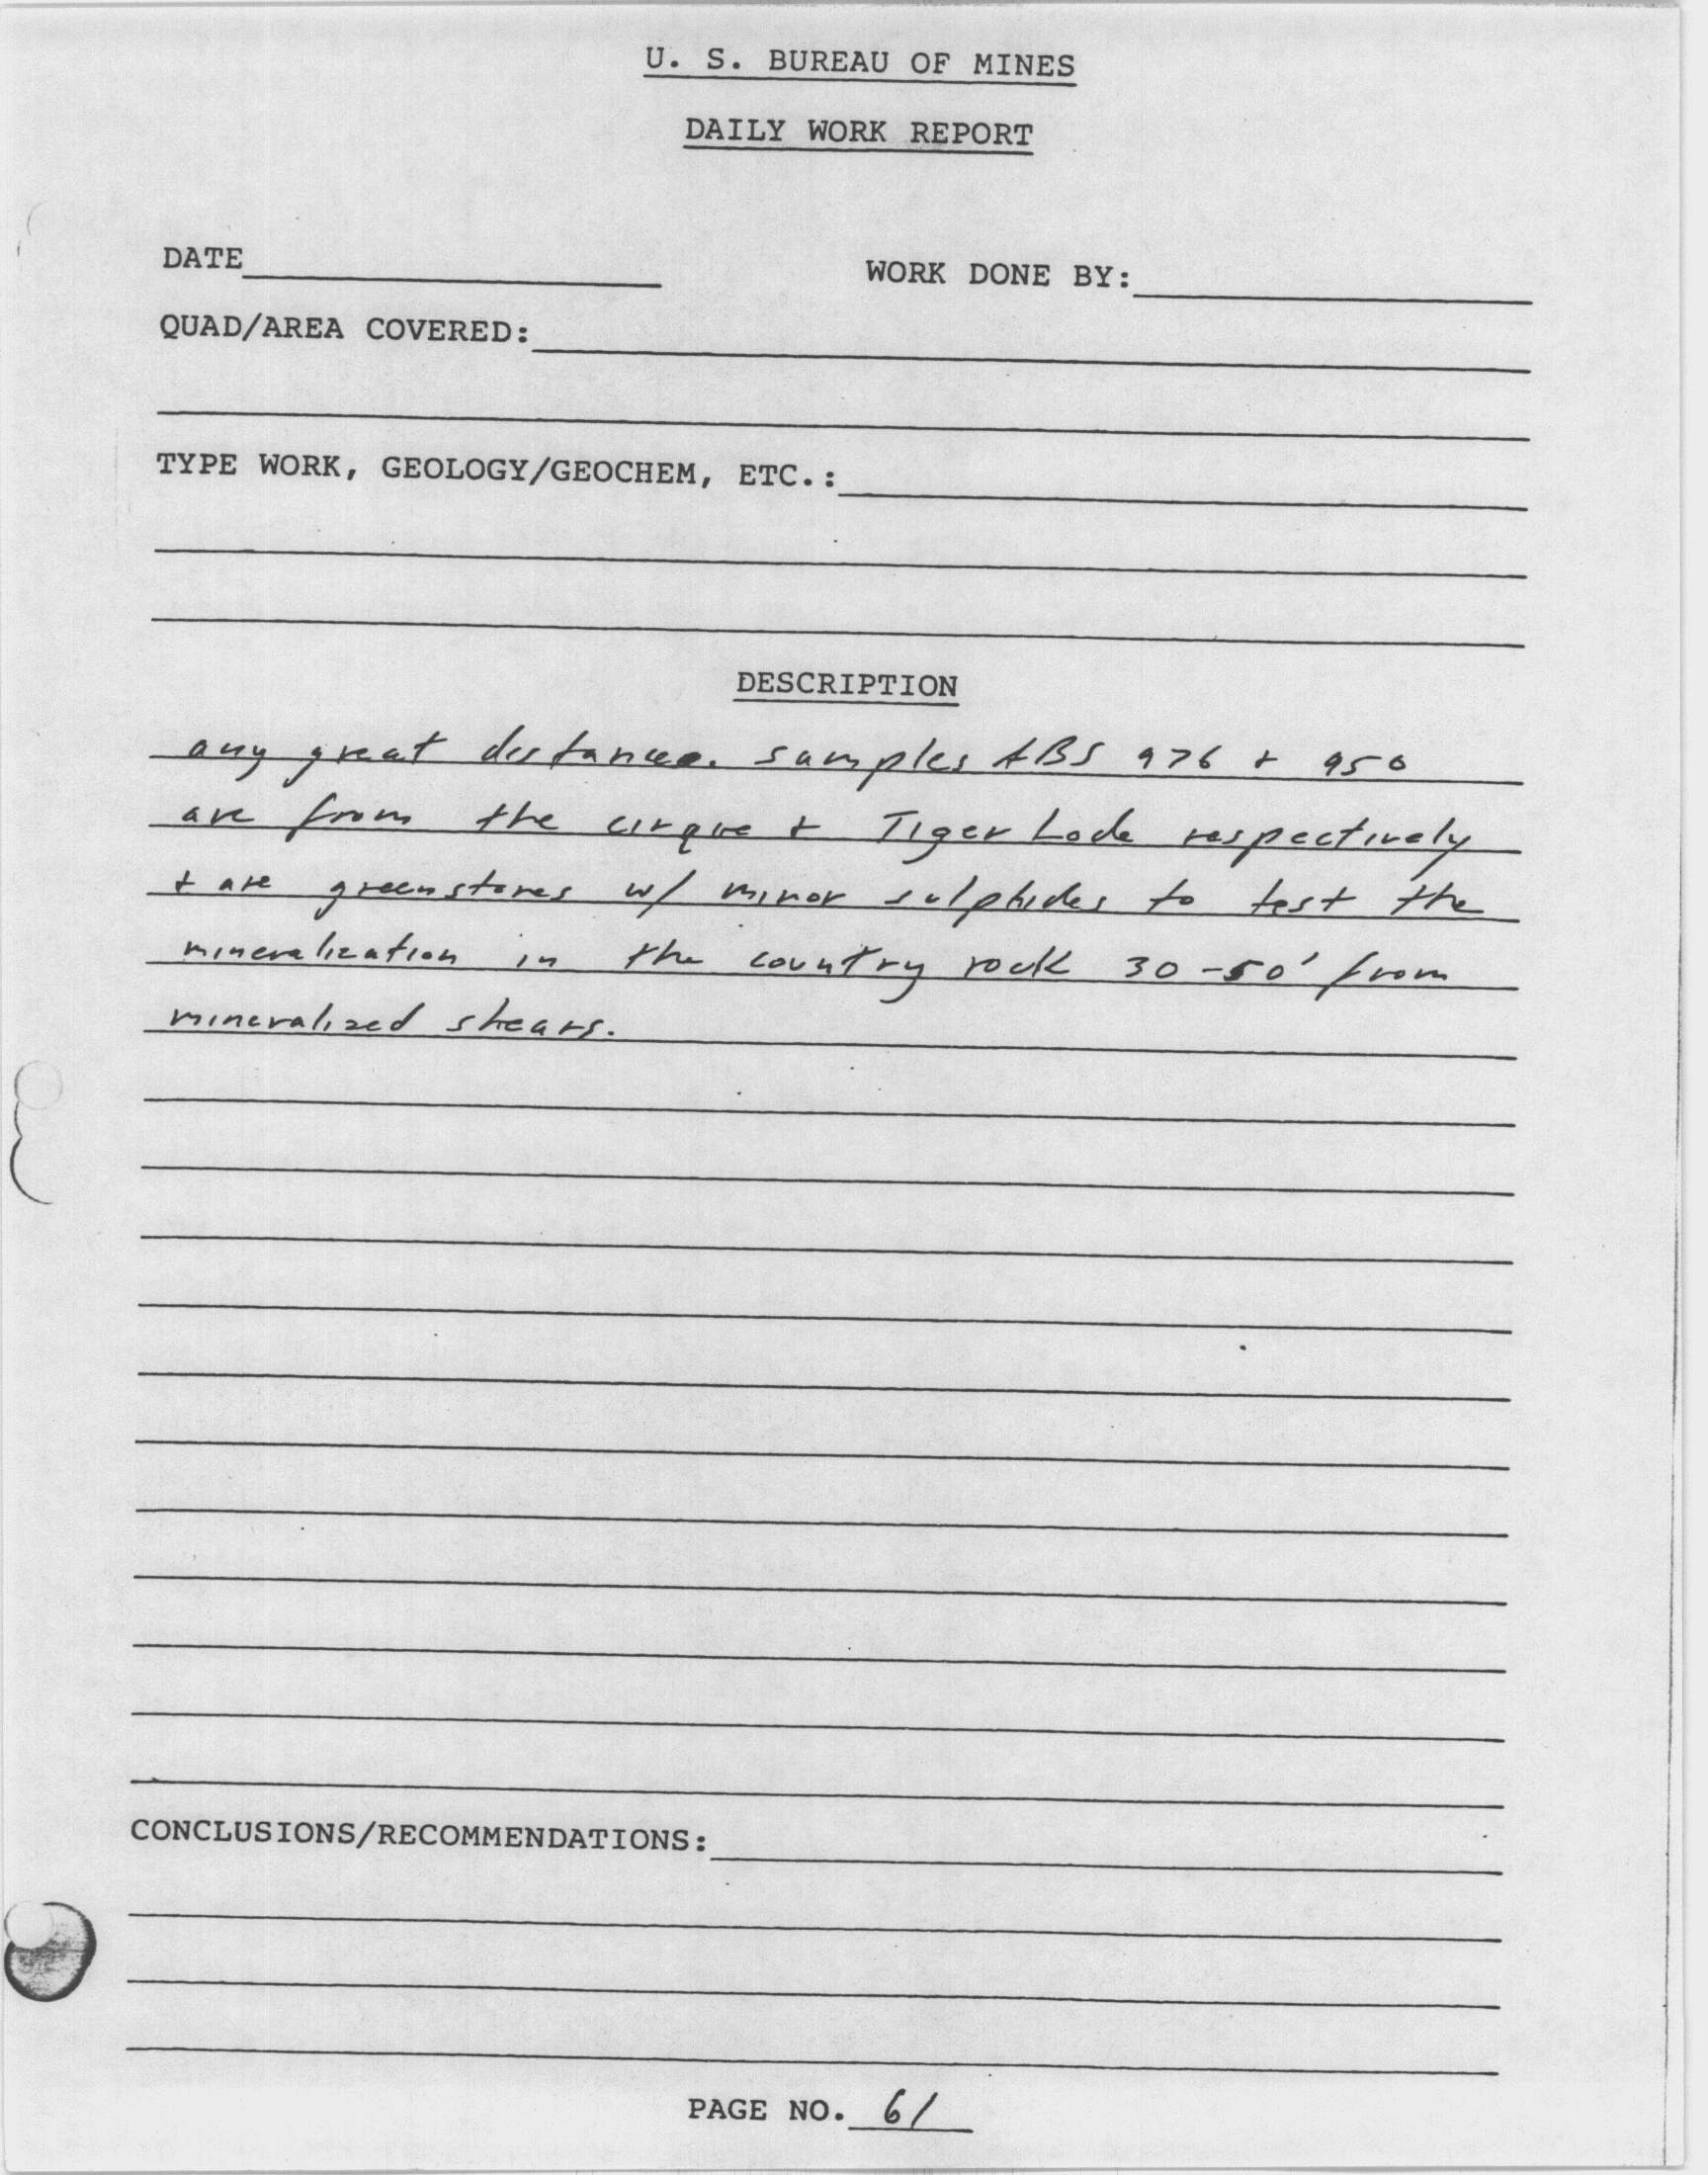 U. S. BUREAU OF MINES
DAILY WORK REPORT
DATE
WORK DONE BY:
QUAD/AREA COVERED:
TYPE WORK, GEOLOGY/GEOCHEM, ETC.:
DESCRIPTION
any great distance. samples ABS 976 + 950
are from the cirque + Tiger Lode respectively
+ are greenstones w/ minor sulphides to test the
mineralization in the country rock 30-50' from
mineralized shears.
CONCLUSIONS/RECOMMENDATIONS:
PAGE NO. 61